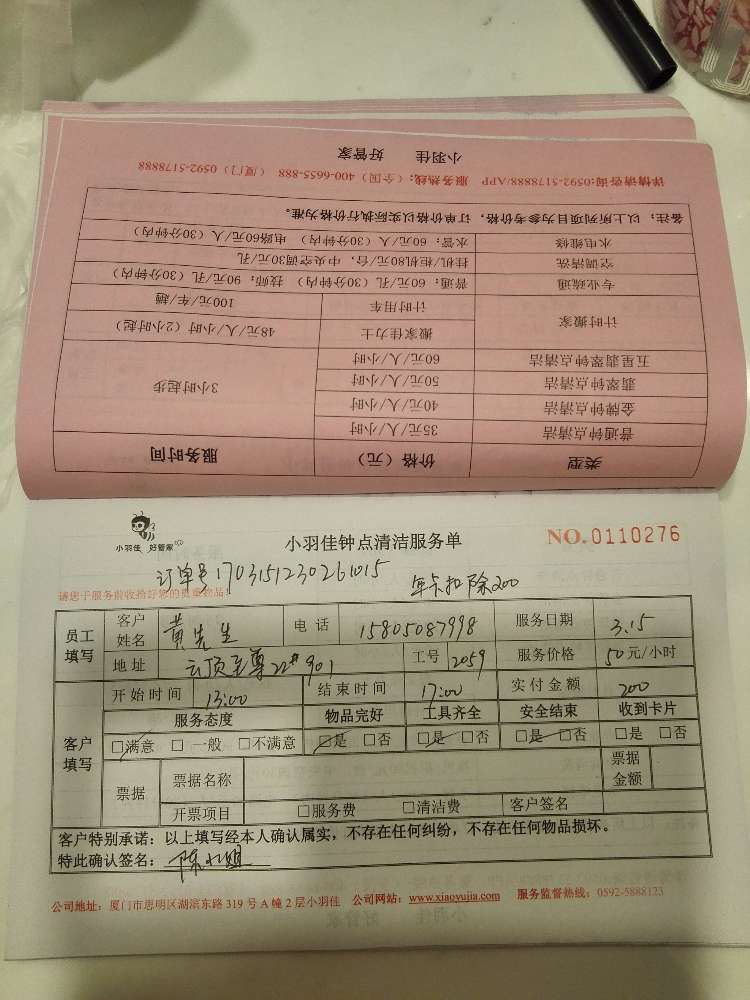 小羽佳 好管家
详情请咨询:0592-5178888/APP 服务热线:(全国)400-6655-888 (厦门)0592-5178888
备注:以上所列项目为参考价格,订单价格以实际执行价为准。
水电维修 水管:60元/人(30分钟内) 电路60元/人(30分钟内)
空调清洗 挂机/柜机80元/台,中央空调30元/孔
专业疏通 普通:60元/孔(30分钟) 技师:90元/孔(30分钟内)
计时搬家 计时用车 100元/车/趟
搬家佳力士 48元/人/小时(2小时起)
五星翡翠钟点清洁 60元/人/小时 3小时起步
翡翠钟点清洁 50元/人/小时
金牌钟点清洁 40元/人/小时
普通钟点清洁 35元/人/小时
类型 价格(元) 服务时间
小羽佳 好管家
小羽佳钟点清洁服务单
NO.0110276
订单号1703151230261015 年卡扣除200
请您于服务前收拾好您的贵重物品!
员工填写 客户姓名 黄先生 电话 15805087998 服务日期 3.15
地址 云顶至尊22# 901 工号 2059 服务价格 50元/小时
客户填写 开始时间 13:00 结束时间 17:00 实付金额 200
服务态度 物品完好 工具齐全 安全结束 收到卡片
□满意 □一般 □不满意 □是 □否 □是 □否 □是 □否 □是 □否
票据 票据名称 票据金额
开票项目 □服务费 □清洁费 客户签名
客户特别承诺:以上填写经本人确认属实,不存在任何纠纷,不存在任何物品损坏。
特此确认签名:陈小姐
公司地址:厦门市思明区湖滨东路319号A幢2层小羽佳 公司网站:www.xiaoyujia.com 服务监督热线:0592-5888123